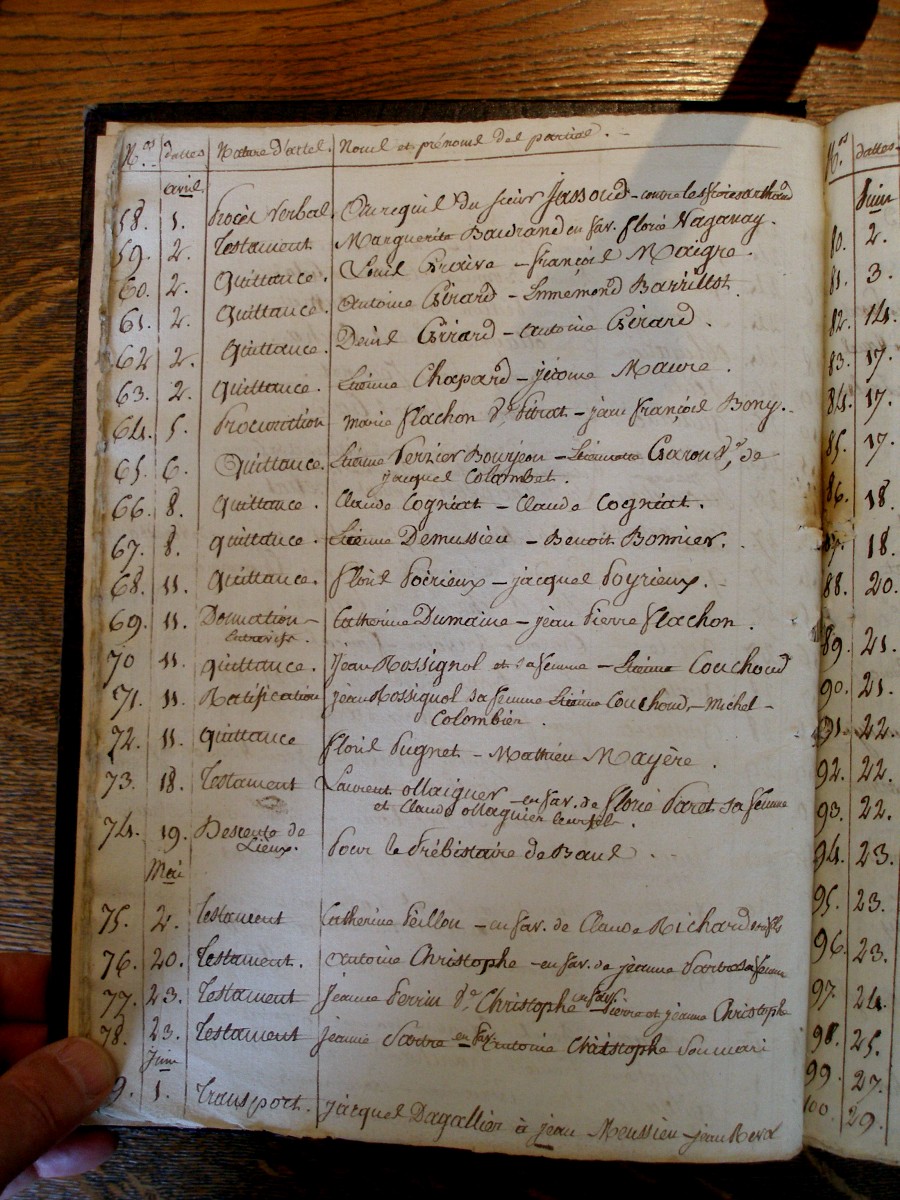 N.os dattes Nature d'actes. Noms et prénoms des parties.
avril
58. 1. Procès Verbal. Au requis du sieur Jassoud - contre les
59. 2. Testament Marguerite Baurand en fav. florie Vaganay.
60. 2. Quittance. Louis - françois Maigre.
61. 2. Quittance. Antoine Girard - Ennemond Barrillot.
62 2. Quittance. Denis Girard - Antoine Girard.
63. 2. Quittance. Etienne Chapard - jérome Maure.
64. 5. Procuration marie flachon v.e Pitrat - jean françois Bony.
65. 6. Quittance. Etienne Verzier Bourjeon - Etiennette v.e de
jacques Colombet.
66. 8. Quittance. Claude Cogniat - Claude Cogniat.
67. 8. quittance. Etienne Demussieu - Benoit Bonnier.
68. 11. Quittance. floris Poërieux - jacques Poyrieux.
69. 11. Donnation Catherine Dumaine - jean Pierre flachon.
Entrevifs.
70 11. quittance. Jean Rossignol et sa femme - Etienne Couchoud
71. 11. Ratification jean Rossignol sa femme Etienne Couchoud, - Michel -
Colombier.
72. 11. Quittance floris Pugnet - Mathieu Mayère.
73. 18. Testament Laurent Ollaignier - en fav. de florie Parot sa femme
et Claude Ollagnier leur fils.
74. 19. Descente de Lieux. Pour le Prébistaire de Bans.
Mai
75. 2. Testament Catherine Peillon - en fav. de Claude Richard
76. 20. Testament. Antoine Christophe - en fav. de jeanne sa femme
77. 23. Testament Jeanne Perrin v.e Christophe en fav. Pierre et jeanne Christophe
78. 23. Testament jeanne en fav. Antoine Christophe son mari
Juin
9. 1. Transport. jacques Dagallier à jean Meussieu - jean
N.os dattes
Juin
80. 2.
81. 3.
82. 14.
83. 17.
84. 17.
85. 17
86. 18.
87. 18.
88. 20.
89. 21.
90. 21.
91. 22.
92. 22.
93. 22.
94. 23.
95. 23.
96. 23.
97. 24.
98. 25.
99. 27.
100. 29.